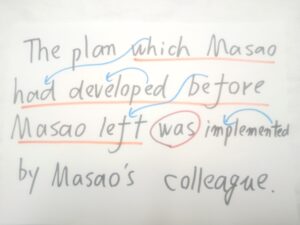 The plan which Masao
had developed before
Masao left was implemented
by Masao's colleague.